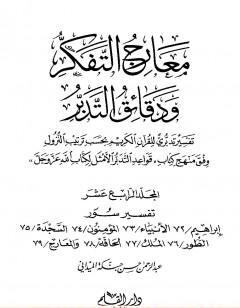 معارج التفكر
ودقائق التدبر
تفسير تدبري للقرآن الكريم بحسب ترتيب النزول
وفق منهج كتاب «قواعد التدبر الأمثل لكتاب الله عز وجل»
المجلد الرابع عشر
تفسير سور
إبراهيم/٧٢ الأنبياء/٧٣ المؤمنون/٧٤ السجدة/٧٥
الطور/٧٦ الملك/٧٧ الحاقة/٧٨ والمعارج/٧٩
عبد الرحمن حسن حبنكة الميداني
دار القلم